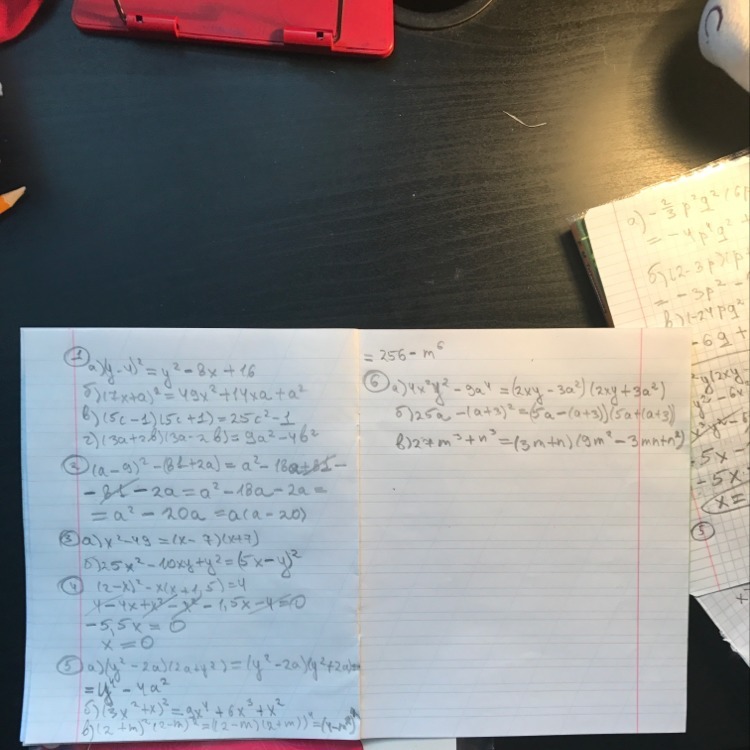 ① а) (y-4)² = y² - 8x + 16
б) (7x+a)² = 49x² + 14xa + a²
в) (5c-1)(5c+1) = 25c² - 1
г) (3a+2b)(3a-2b) = 9a² - 4b²
② (a-9)² - (81+2a) = a² - 18a + 81 -
- 81 - 2a = a² - 18a - 2a =
= a² - 20a = a(a-20)
③ а) x² - 49 = (x-7)(x+7)
б) 25x² - 10xy + y² = (5x-y)²
④ (2-x)² - x(x+1,5) = 4
4 - 4x + x² - x² - 1,5x - 4 = 0
-5,5x = 0
x = 0
⑤ а) (y²-2a)(2a+y²) = (y²-2a)(y²+2a) =
= y⁴ - 4a²
б) (3x²+x)² = 9x⁴ + 6x³ + x²
в) (2+m)²(2-m)² = ((2-m)(2+m))
= 256 - m⁶
⑥ а) 4x²y² - 9a⁴ = (2xy-3a²)(2xy+3a²)
б) 25a - (a+3)² = (5a-(a+3))(5a+(a+3))
в) 27m³ + n³ = (3m+n)(9m² - 3mn + n²)
а) - 2/3 p²q²
= -4p⁴q² +
б) (2-3p)
= -3p² -
в) (-24pq²
-6q +
-5x -
-5x
x =
⑤